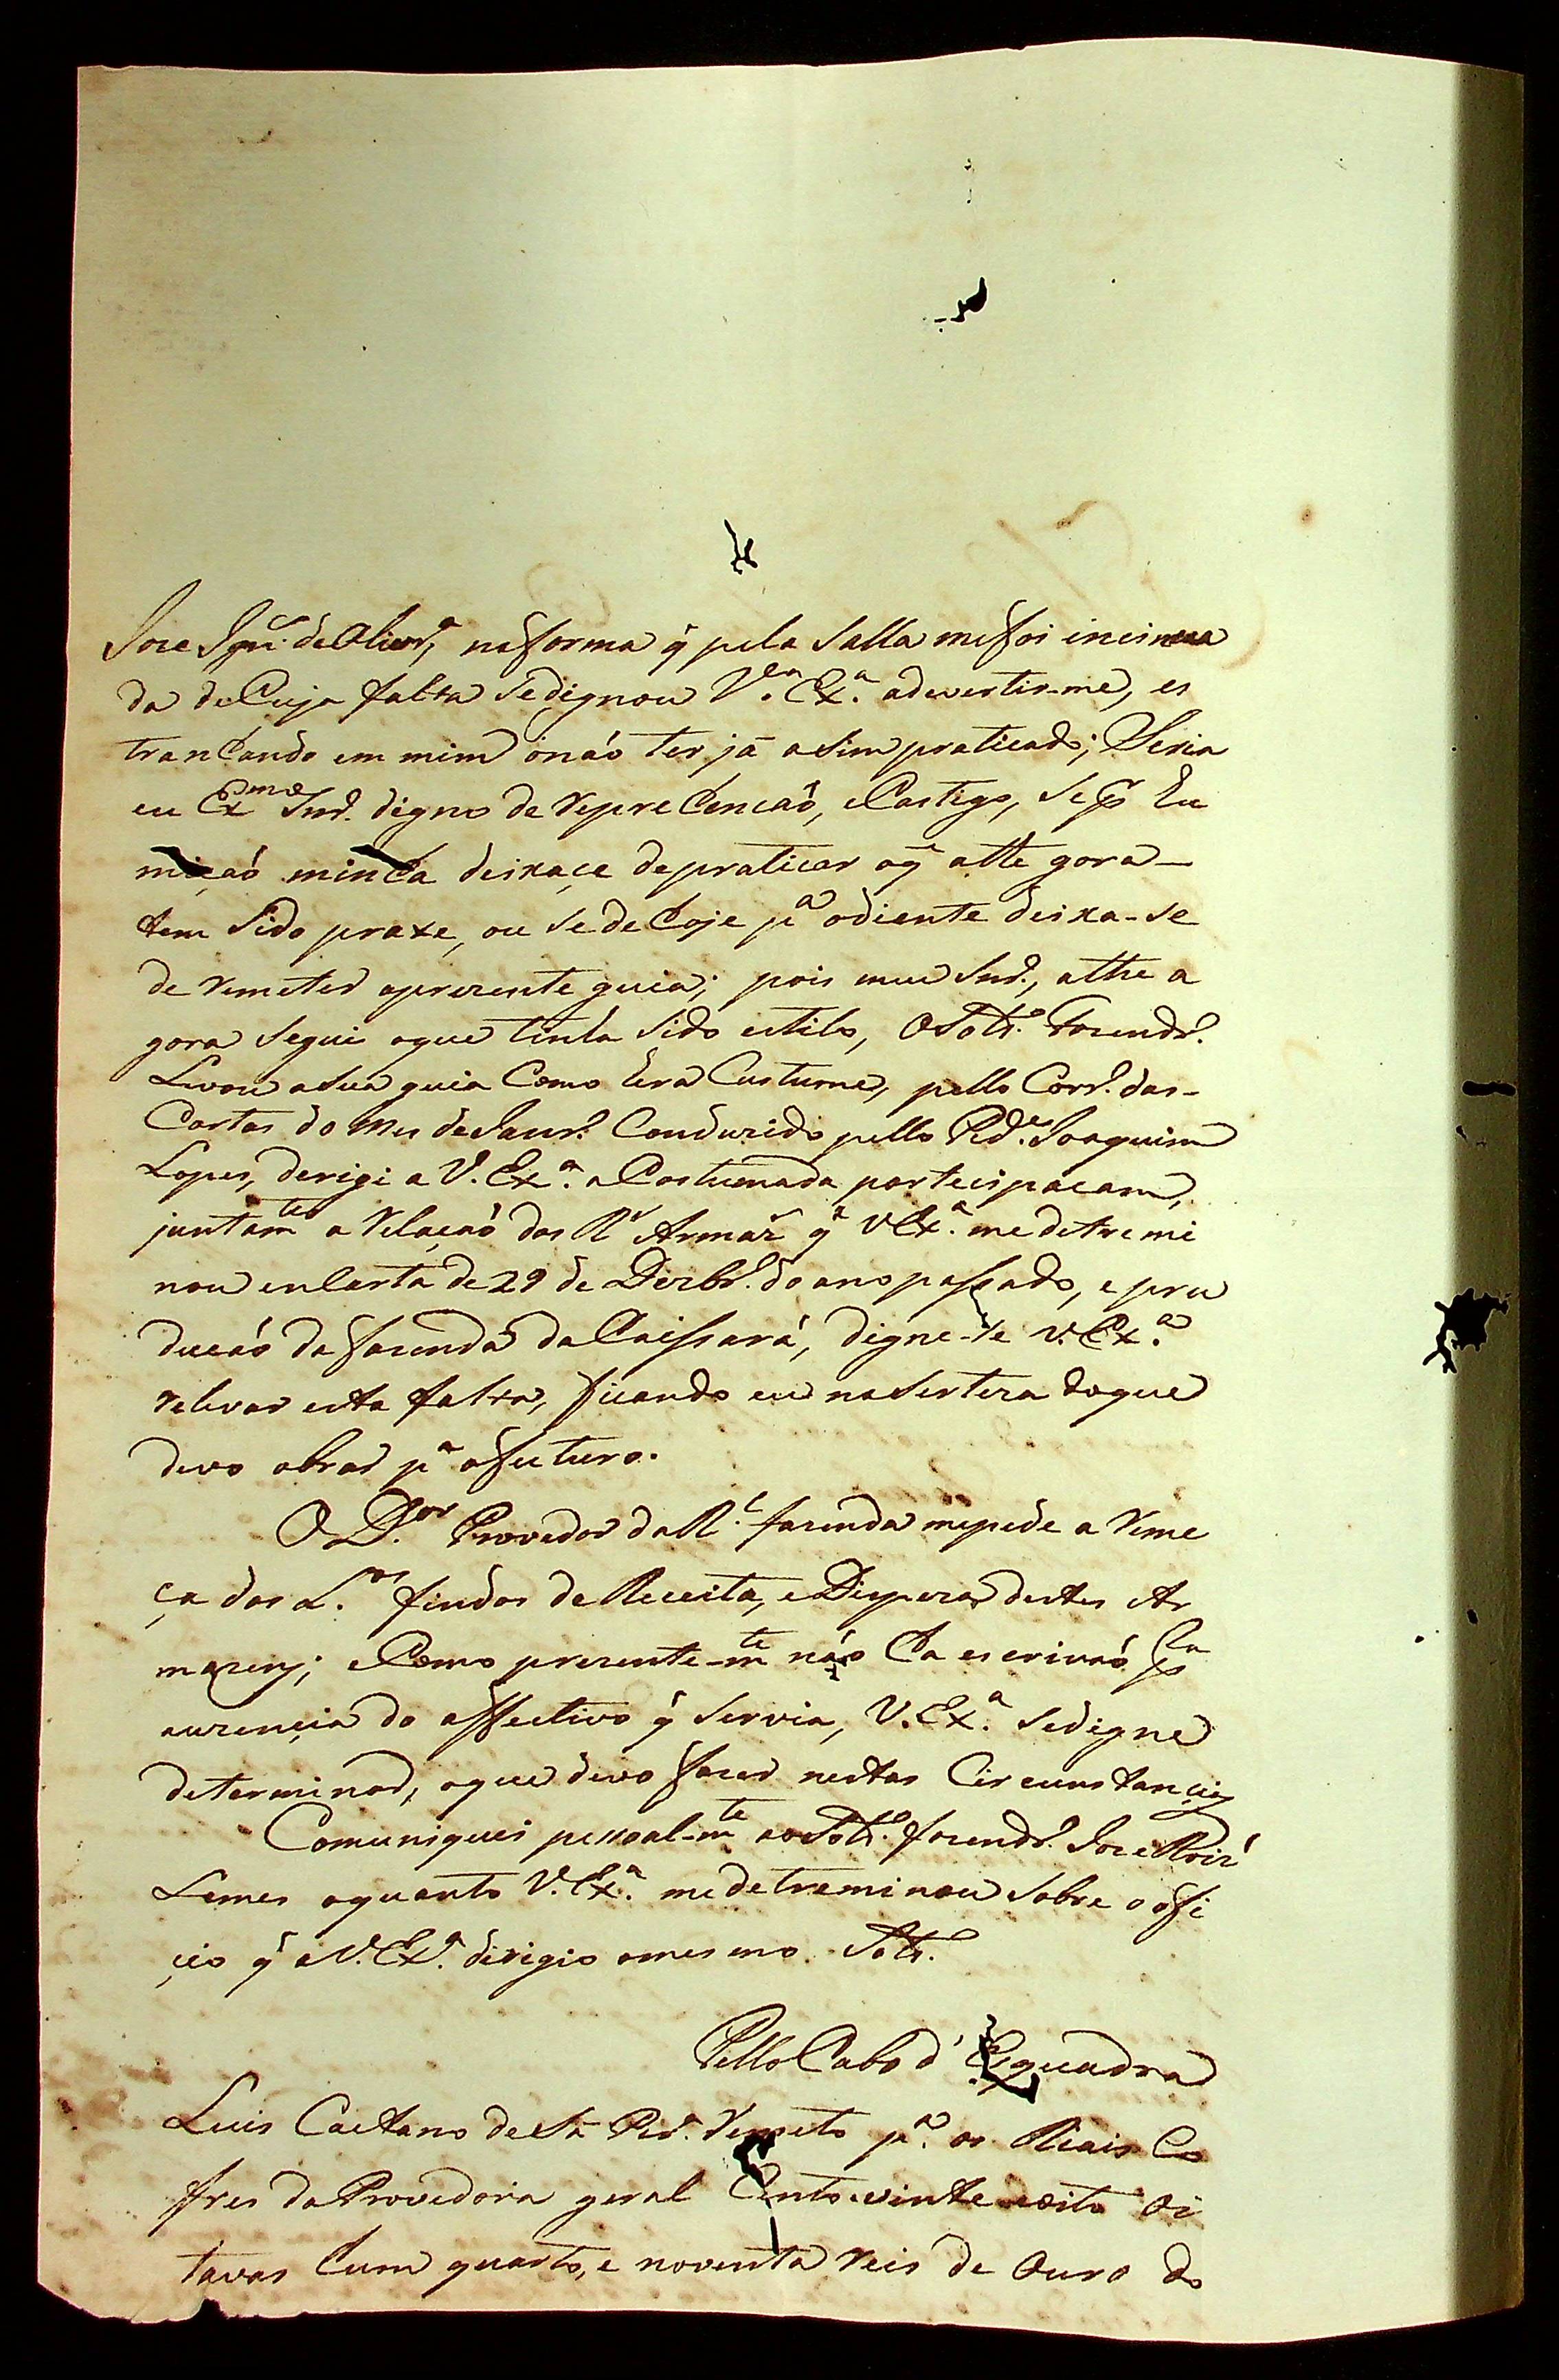 Joze Ign.co de Olivr.a, na forma q̃ pela Salla me foi incinua
da de Cuja falta Se dignou V.a Ex.a adevertir-me, es
tranhando em mim o náo ter já asim praticado; Seria
eu Ex.mo Snr. digno de reprehencaó, e Castigo, Se p.r hu
miçaó minha deixaçe de praticar oq̃ atte gora
tem Sido praxe, ou Se de hoje p.a odiente deixa-se
de remeter aprezente guia; pois meu Snr., athe a
gora Segui oque tinha Sido estilo, O Sold.o Fazendr.o
Levou a Sua guia Como hera Custume, pello Corr.o das
Cartas do Mes de Janr.o Conduzido pello Ped.e Joaquim
Lopes, derigi a V. Ex.a a Costumada partecipacam,
juntam.te a relaçaó dos R.s Armaz.s q̃ V Ex.a me detremi
nou em Carta de 29 de Dezbr.o do ano passado, e pru
ducaó da fazenda da Caissará, digne-se V. Ex.a
relevar esta falta, ficando eu na Serteza do que
devo obrar p.a o futuro.
O D.or Provedor da R.l fazenda me pede a reme
ça dos L.os findos de Receita, e Dispeza destes Ar
mazens; e Como prezente-m.te náo ha escrivaó p.la
auzençia do effectivo q̃ Servia, V. Ex.a Se digne
determinar, oque devo fazer nestas Circunstançias
Comuniquei pessoal-m.te ao Sold.o fazendr.o Joze Roiz
Lemes oquanto V. Ex.a me detreminou Sobre o ofi
çio q̃ a V. Ex.a dirigio o mesmo Sold.o
Pello Cabo d' Esquadra
Luis Caetano de Sá Per.a remeto p.a os Reais Co
fres da Provedoria geral Cento e vinte e oito Oi
tavas hum quarto, e noventa reis de Ouro do